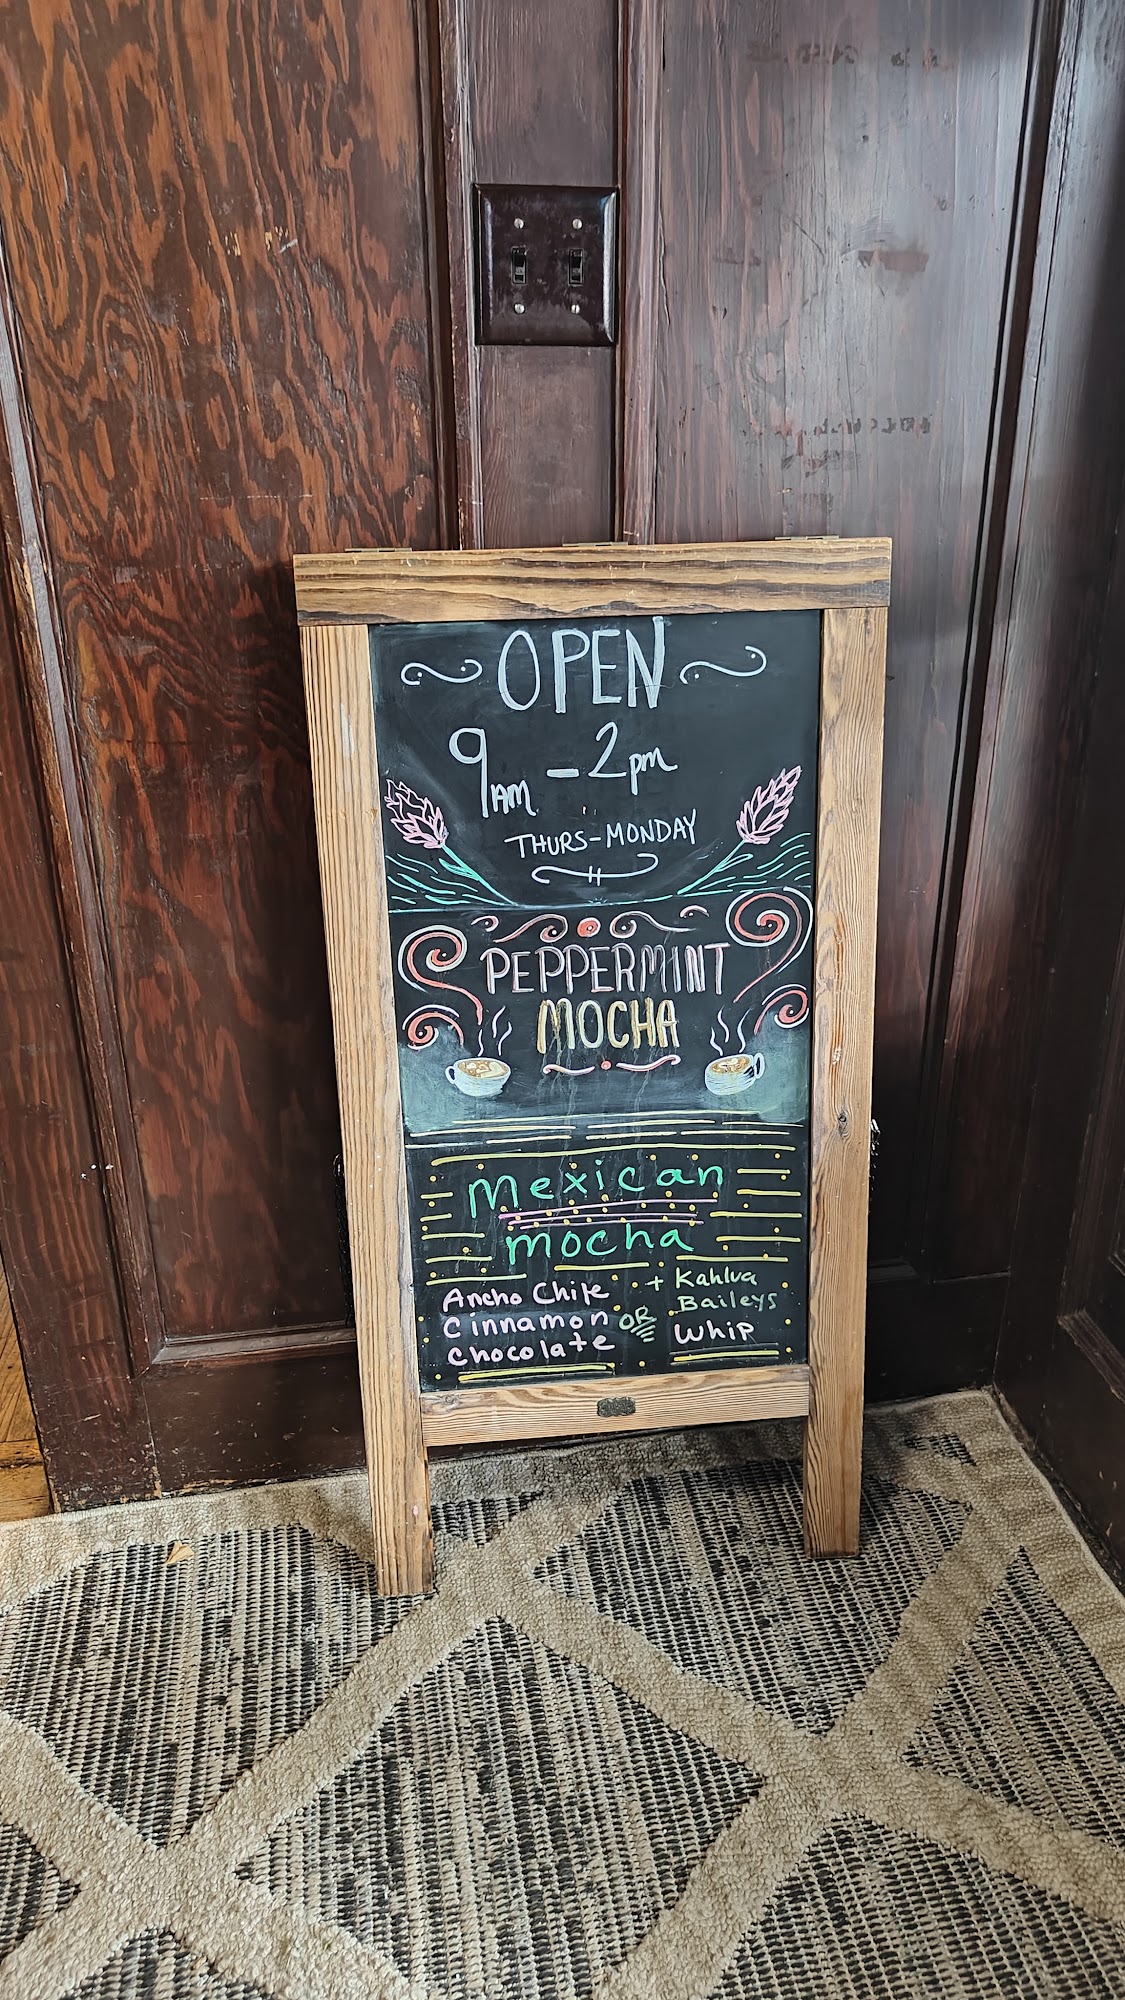 OPEN
9AM - 2pm
THURS-MONDAY
PEPPERMINT
MOCHA
Mexican
mocha
Ancho Chile
Cinnamon
Chocolate
OR
+ Kahlua
Baileys
Whip